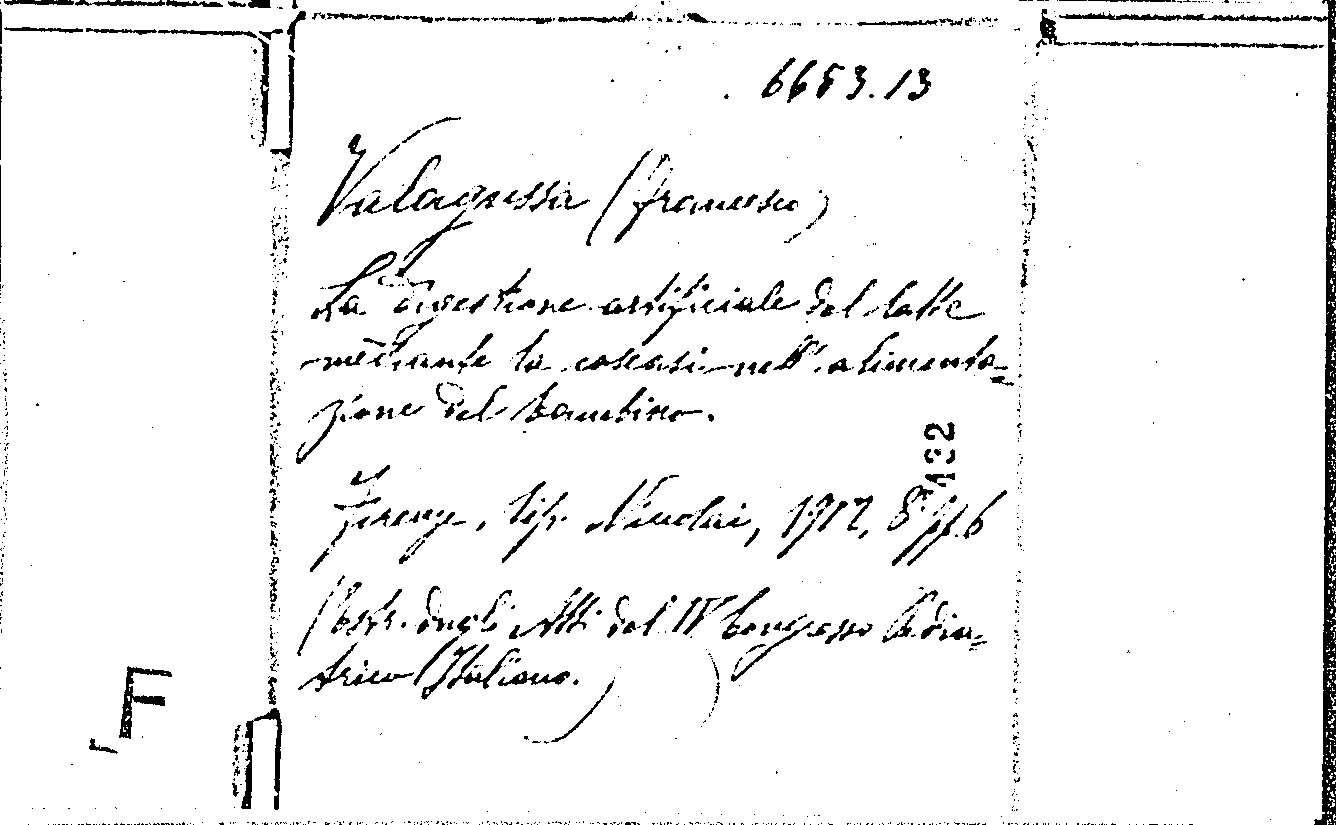 6653.13
Valagussa (Francesco)
La digestione artificiale del latte
mediante la coscasi nell'alimenta-
zione del bambino.
132
Firenze, tip. Niccolai, 1912, 8° pp. 6
(Estr. dagli Atti del IV Congresso Pedia-
trico Italiano.)
F